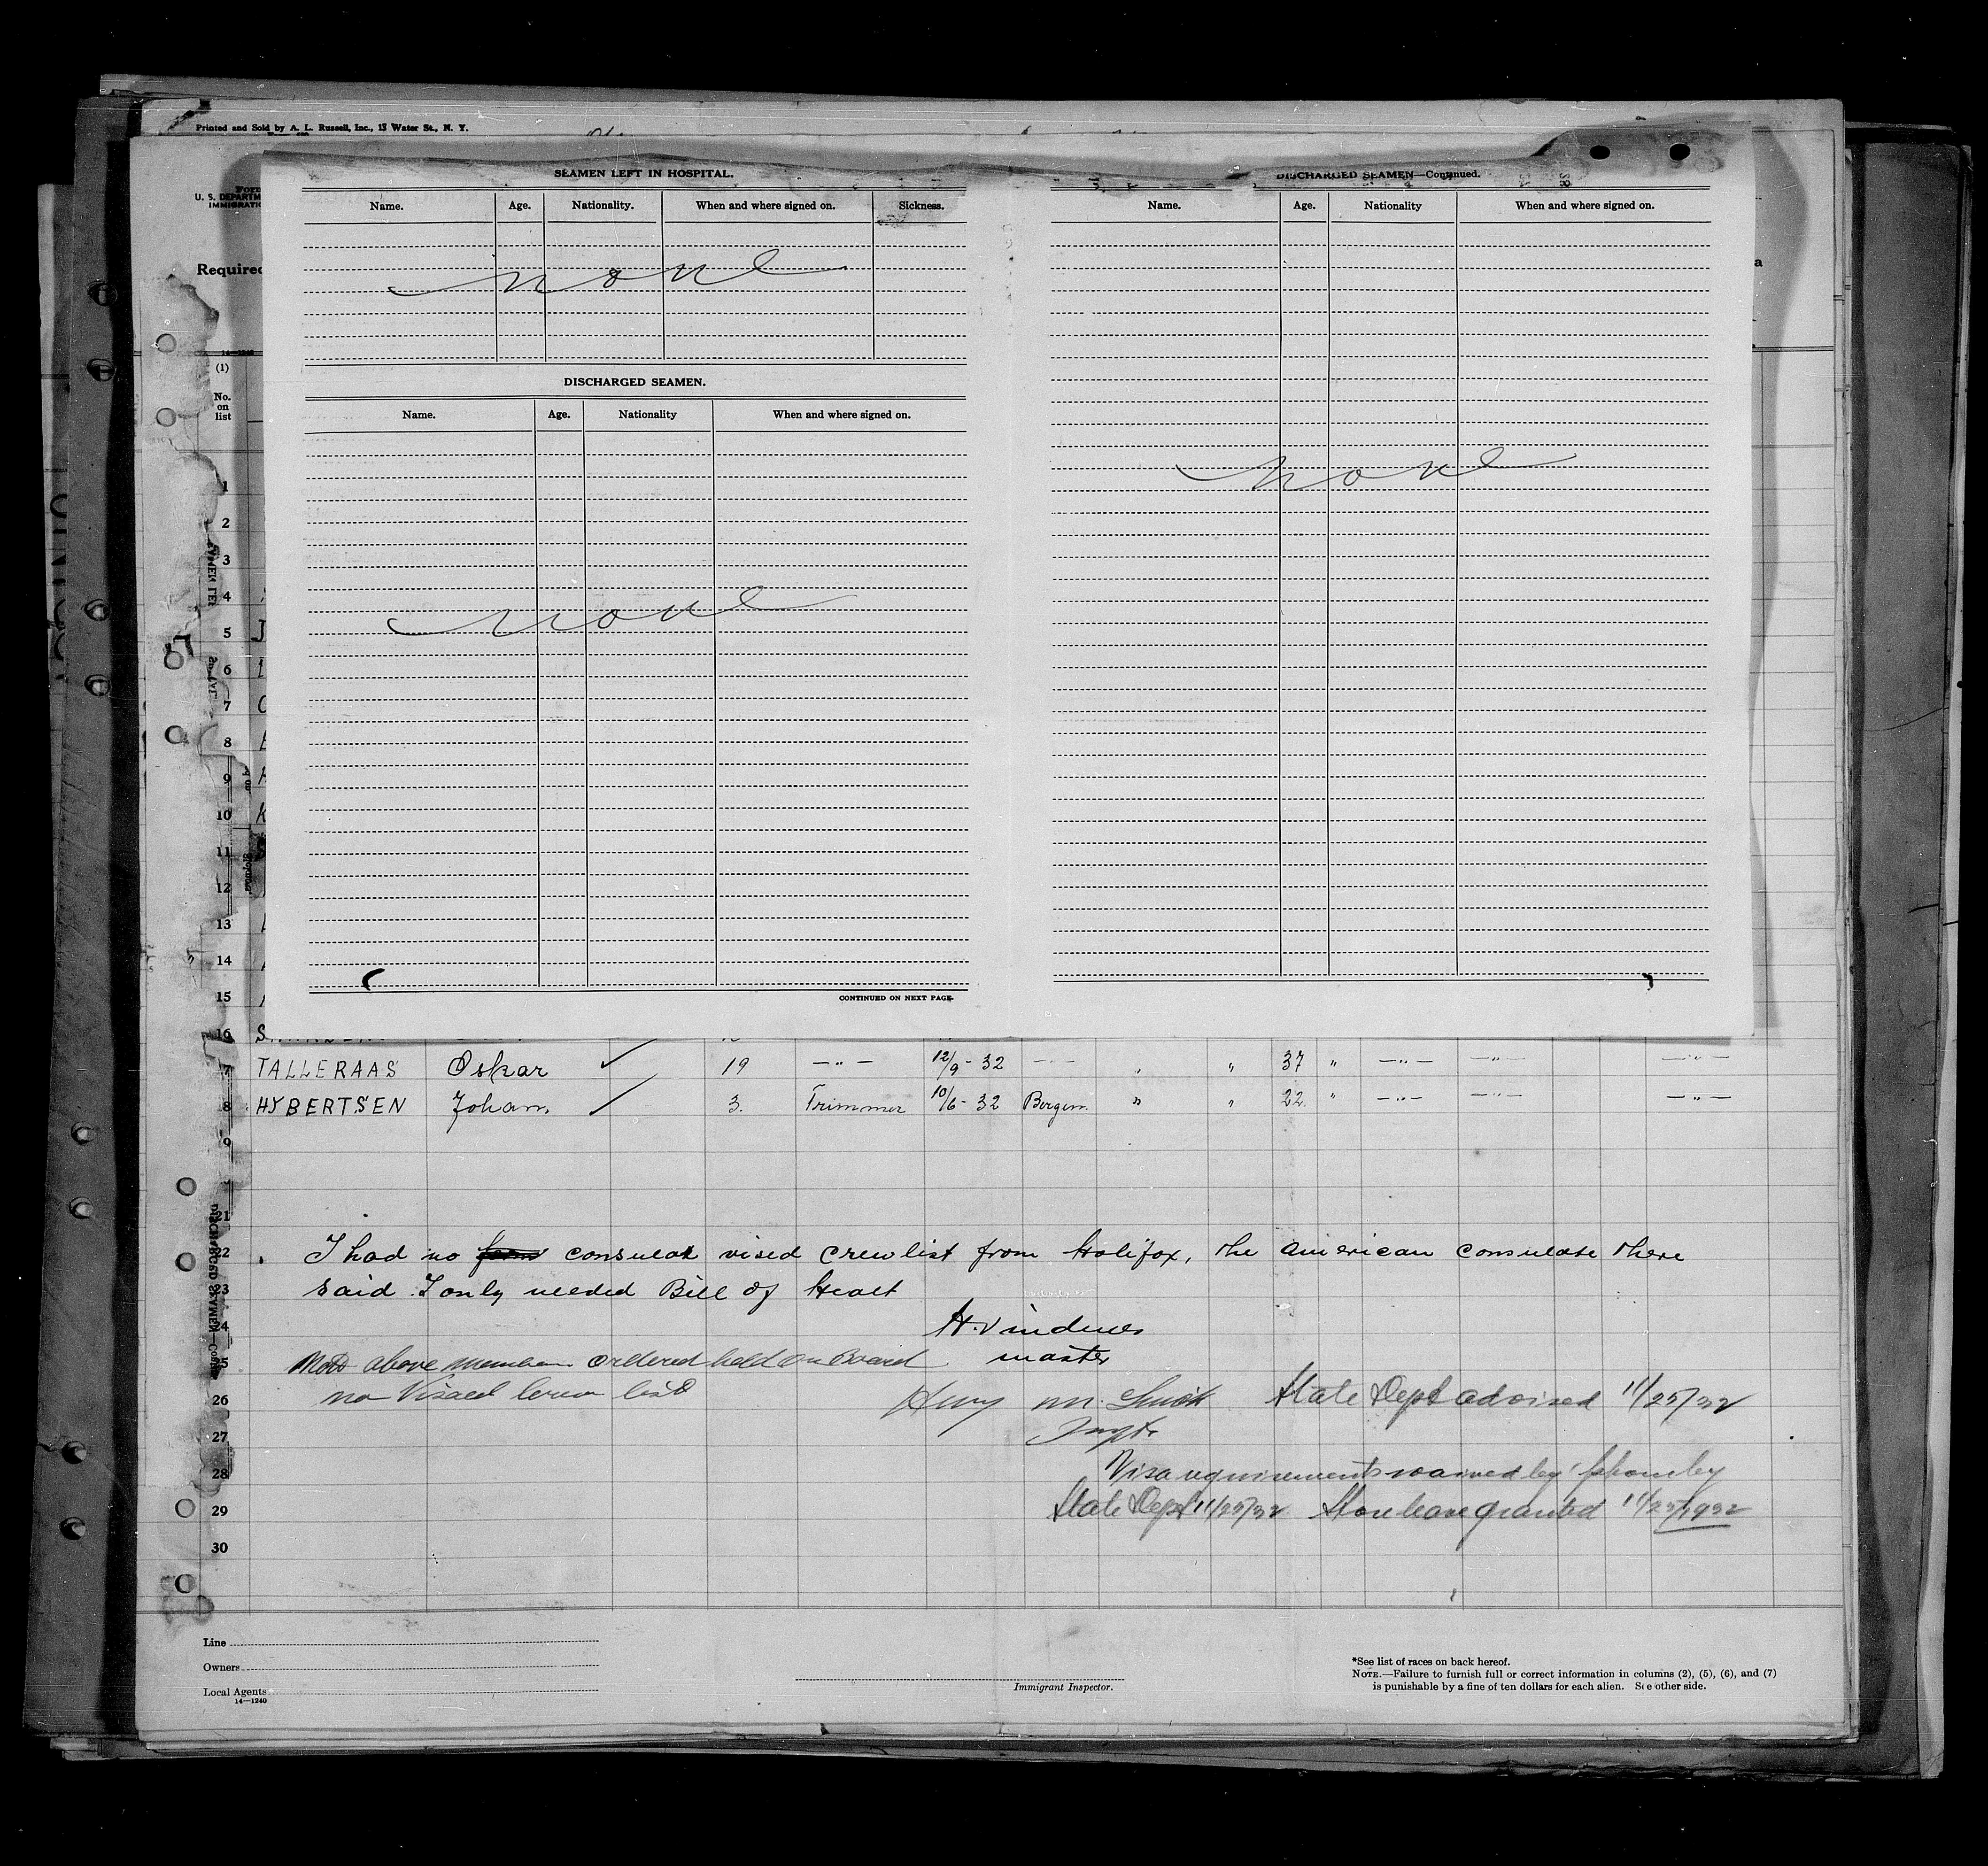 Printed and Sold by A. L. Russell, Inc., 15 Water St., N. Y.
U. S. DEPARTM
IMMIGRATIO
Required
SEAMEN LEFT IN HOSPITAL.
Name. Age. Nationality. When and where signed on. Sickness.
none
DISCHARGED SEAMEN.
Name. Age. Nationality When and where signed on.
none
CONTINUED ON NEXT PAGE.
DISCHARGED SEAMEN—Continued.
Name. Age. Nationality When and where signed on.
none
14—1240
(1)
No.
on
list
1
2
3
4
5
6
7
8
9
10
11
12
13
14
15
16
7 TALLERAAS Oskar ✓ 19 —"— 12/9-32 —"— " " 37 " —"— —"— —"—
8 HYBERTSEN Johan. ✓ 3. Trimmer 10/6-32 Bergen " " 22. " —"— —"— —"—
9
21
22 I had no consular vised crewlist from Halifax, the american consulate there
23 said I only needed Bill of Healt
24 H. Vindenes
25 master
above ordered held on Board
26 no Visaed crew list
Henry M. Smith State Dept advised 11/25/32
27 Insptr
28 Visa requirements waived by phone by
29 State Dept 11/25/32 Shore leave granted 11/25/1932
30
Line
Owners
Local Agents
14—1240
Immigrant Inspector.
*See list of races on back hereof.
NOTE.—Failure to furnish full or correct information in columns (2), (5), (6), and (7)
is punishable by a fine of ten dollars for each alien. See other side.